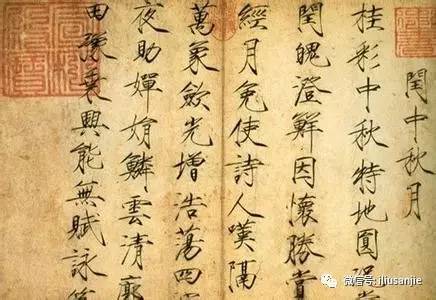 閏中秋月
桂彩中秋特地圓
閏魄澄鮮因懷勝賞
經月免使詩人嘆隔
萬象斂光增浩蕩四
夜助嬋娟鱗雲清廓
田豫乘興能無賦詠
微信号: iliusanjie